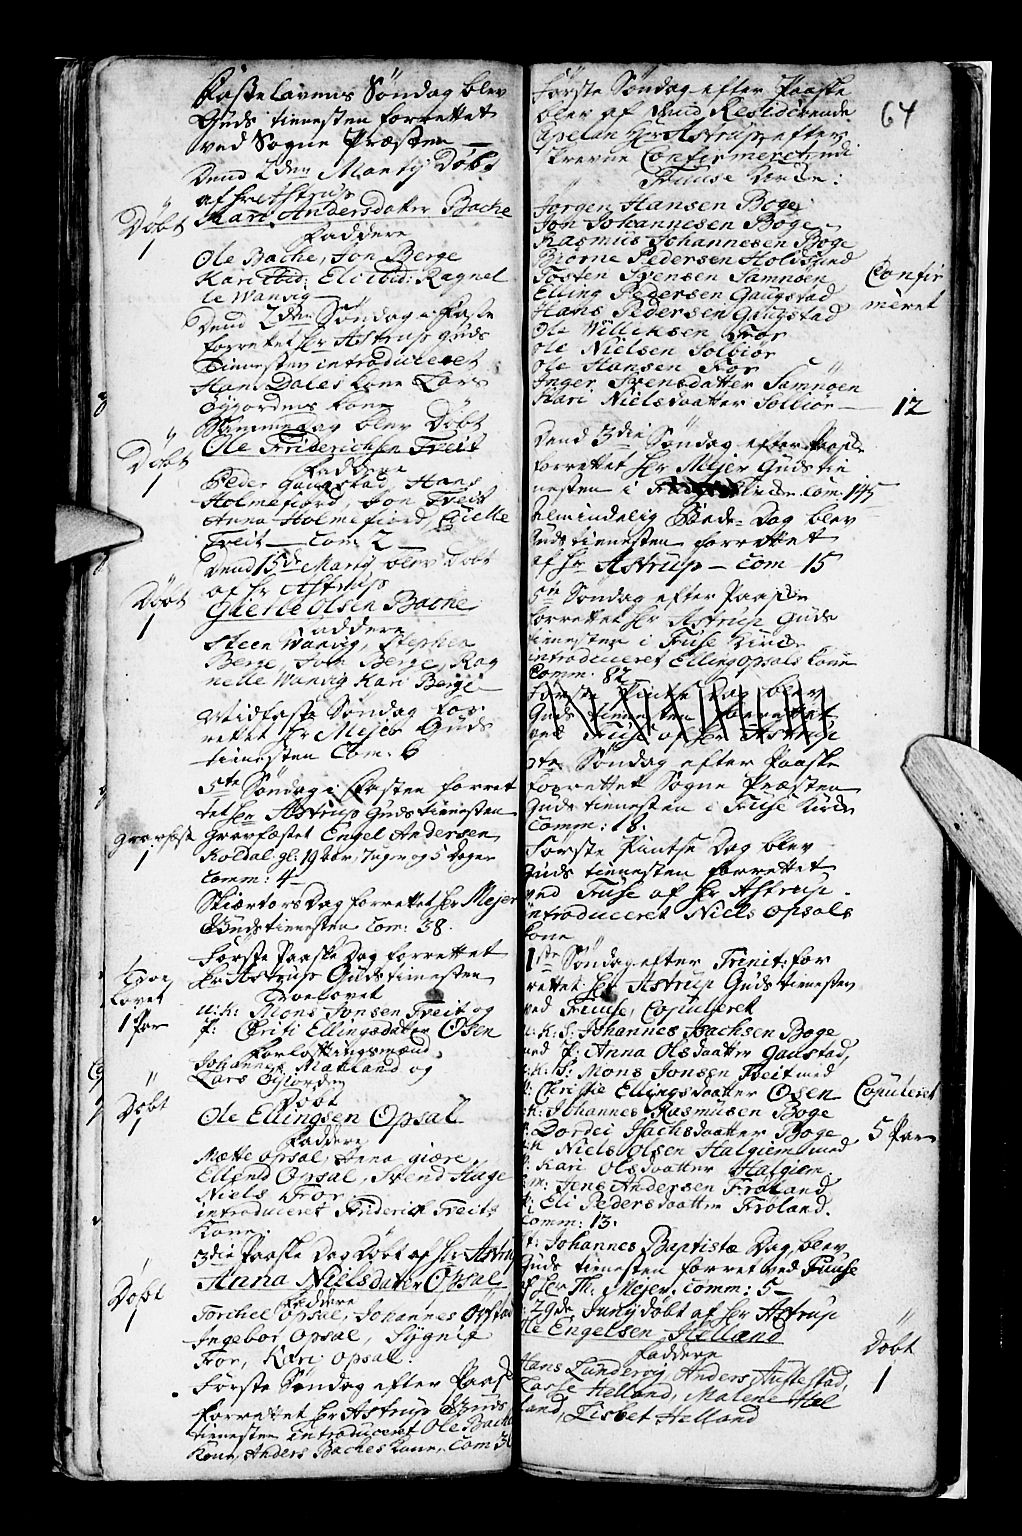 Fastelavens Søndag blev
Guds tienesten forrettet
ved Sogne Præsten
Dend 2den Marty Døbt
af Hr Astrup
Døbt
1
Kari Andersdater Bache
Faddere
Ole Bache, Jon Berge
Kari ibid: Eli ibid: Ragnel
le Wanvig
Dend 2den Søndag i Faste
forrettet Hr Astrup Guds
tienesten introduceret
Hans Dales kone Lars
Øyjordens kone
Samme dag blev Døbt
Døbt
1
Ole Friderichsen Treit
Faddere
Peder Gaugstad, Hans
Holmefiord, Jon Treit
Anna Holmefiord,
Treit com 2
Dend 15de Marty blev Døbt
af Hr Astrup
Døbt
1
Olsen Bache
Faddere
Steen Wanvig, Stephen
Berge, Jon Berge, Rag
nelle Wanvig Kari Berge
Midfaste Søndag for
rettet Hr Mejer Guds
tienesten Com: 6
5te Søndag i Fasten forret
tet Hr Astrup Gudstienesten
Gravfæste
1
Gravfæstet Engel Andersen
Koldal gl: 19 Aar, 7 uger og 5 Dager
Comm: 4
Skiærtorsdag forrettet Hr Mejer
Gudstienesten Com: 38.
Første Paaske Dag forrettet
Hr Astrup Guds tienesten
Troe
lovet
1 Par
Troelovet
u: k: Mons Jonsen Treit og
P: Christi Ellingsdater Osen
Forlofningsmænd,
Johannes Matland og
Lars Øyjorden
Døbt
Døbt
1
Ole Ellingsen Opsal
Faddere
Mætte Opsal, Anna giære,
Ellend Opsal, Svend Hage
Niels Frør
introduceret Friderich Treits
Kone.
3die Paaske Dag Døbt af Hr Astrup
Døbt
1
Anna Nielsdater Opsal
Faddere
Torchel Opsal, Johannes
Ingebor Opsal, Sygnif
For, Kari Opsal.
Første Søndag efter Paaske
forrettet Hr Astrup Guds
tienesten introduceret Ole Bache
Kone, Anders Baches kone, Com 30
64
Første Søndag efter Paaske
blev af dend Residerende
Capelan Hr Astrup efter
skrevne Confirmeret udi
Fuuse Kirke:
Jørgen Hansen Boge
Jon Johannesen Boge
Rasmus Johannesen Boge
Biørne Pedersen Holdsund
Tosten Svensen Samnøen
Elling Pedersen Gaugstad
Hans Pedersen Gaugstad
Confir
meret
Ole Willichsen Frør
Ole Nielsen Solbiør
Ole Hansen For
Inger Svensdatter Samnøen
Kari Nielsdaatter Solbiør
12
Dend 3die Søndag efter Paaske
forrettet Hr Mejer Guds tie
nesten i Kirke com: 145
Almindelig Bede-Dag blev
Guds tienesten forrettet
af Hr Astrup com 15
5te Søndag efter Paaske
forrettet Hr Astrup Guds
tienesten i Fuse Kirke
introduceret Elling Opsals Kone
Comm: 82
Første Pintse Dag blev
Guds tienesten forrettet
ved Fuse af Hr Astrup
Søndag efter Paaske
forrettet Sogne Præsten
Guds tienesten i Fuse Kirke
Comm: 18.
Første Pintse Dag blev
Guds tienesten forrettet
ved Fuse af Hr Astrup.
introduceret Niels Opsals
kone
1ste Søndag efter Trinit: for
rettet Hr Astrup Guds tienesten
ved Fuuse, Copuleret
u: k: S: Johannes Isachsen Boge
med P: Anna Olsdaatter Gaustad,
u: k: S: Mons Jonsen Treit med
P: Christie Ellingsdaatter Osen
Copuleret
5 Par
u: k: Johannes Rasmusen Boge
P: Dordei Isachsdaatter Boge
Niels Olsen Halgiem med
P: Kari Olsdaatter Halgiem
E: m: Jens Andersen Frøland
P: Eli Pedersdaatter Frøland.
Comm: 13.
St: Johannes Baptistæ Dag blev
Guds tienesten forret ved Fuuse
af Hr Th: Mejer, comm: 5
D: 29de Juny døbt af Hr Astrup
Ole Engelsen Helland
Døbt
1
Faddere
Hans Lundervig, Anders Austestad,
Lasse Helland, Malene Hel
land, Lisbet Helland